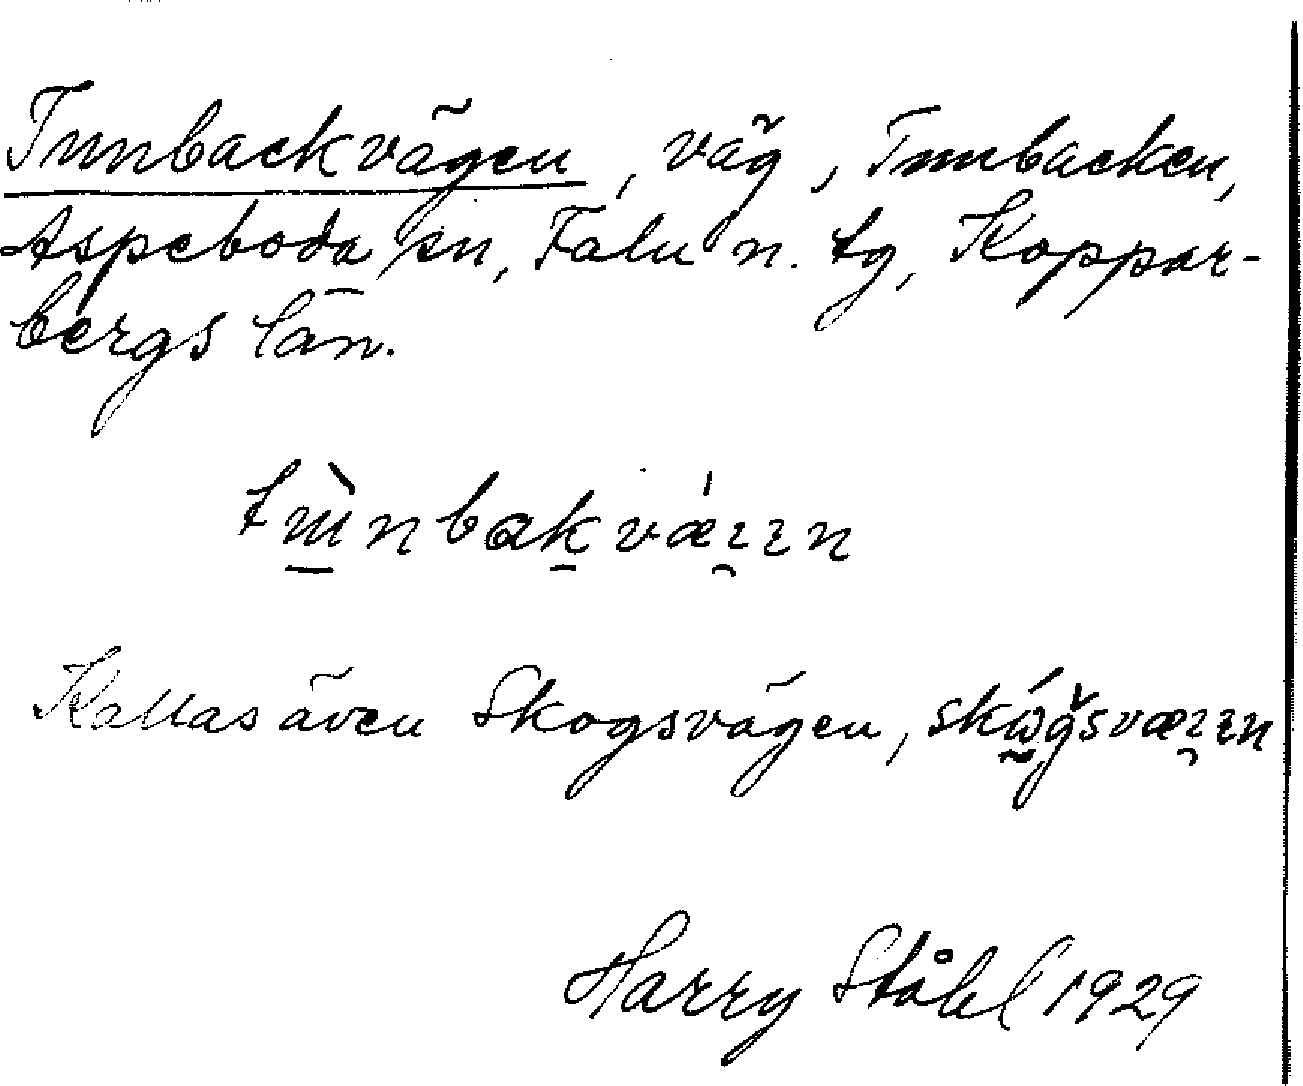 Tunnbackvägen, väg, Tunnbacken,
Aspeboda sn, Falu n. tg, Koppar-
bergs län.
Kallas även Skogsvägen,
Harry Ståhl 1929